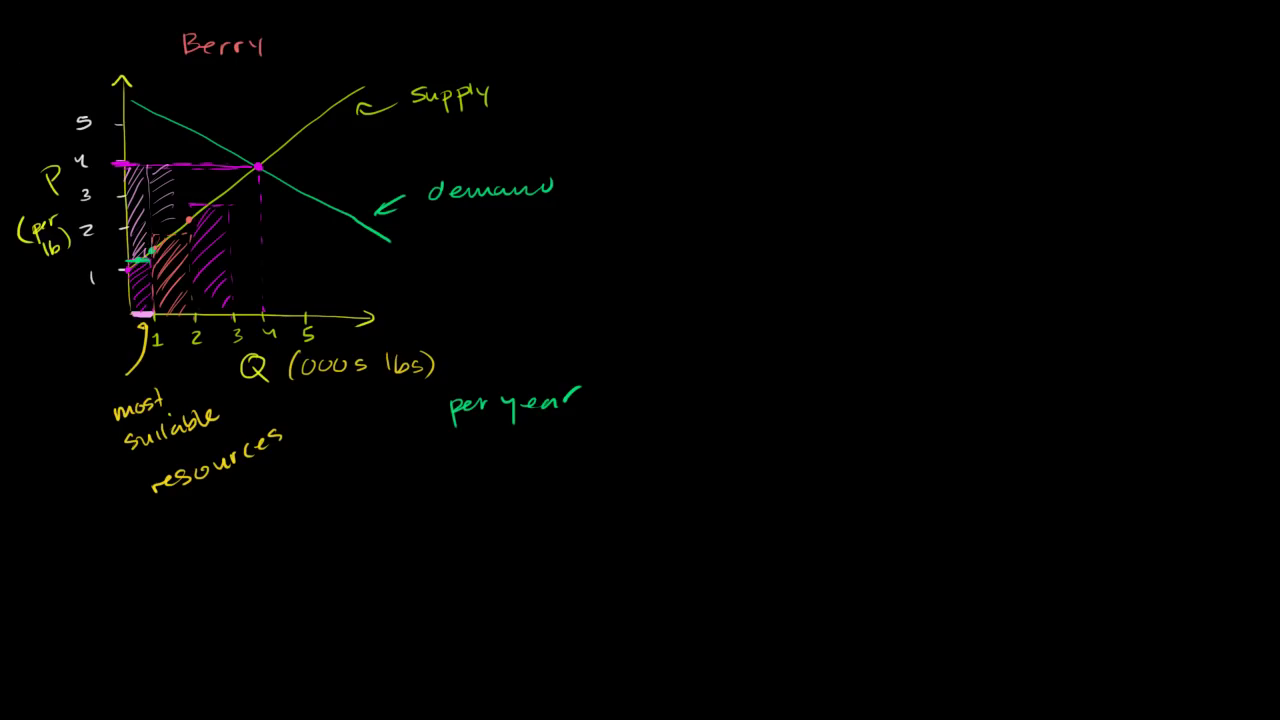 Berry
supply
demand
5
4
3
2
1
P
(per
lb)
1 2 3 4 5
Q (000s lbs)
per year
most
suitable
resources